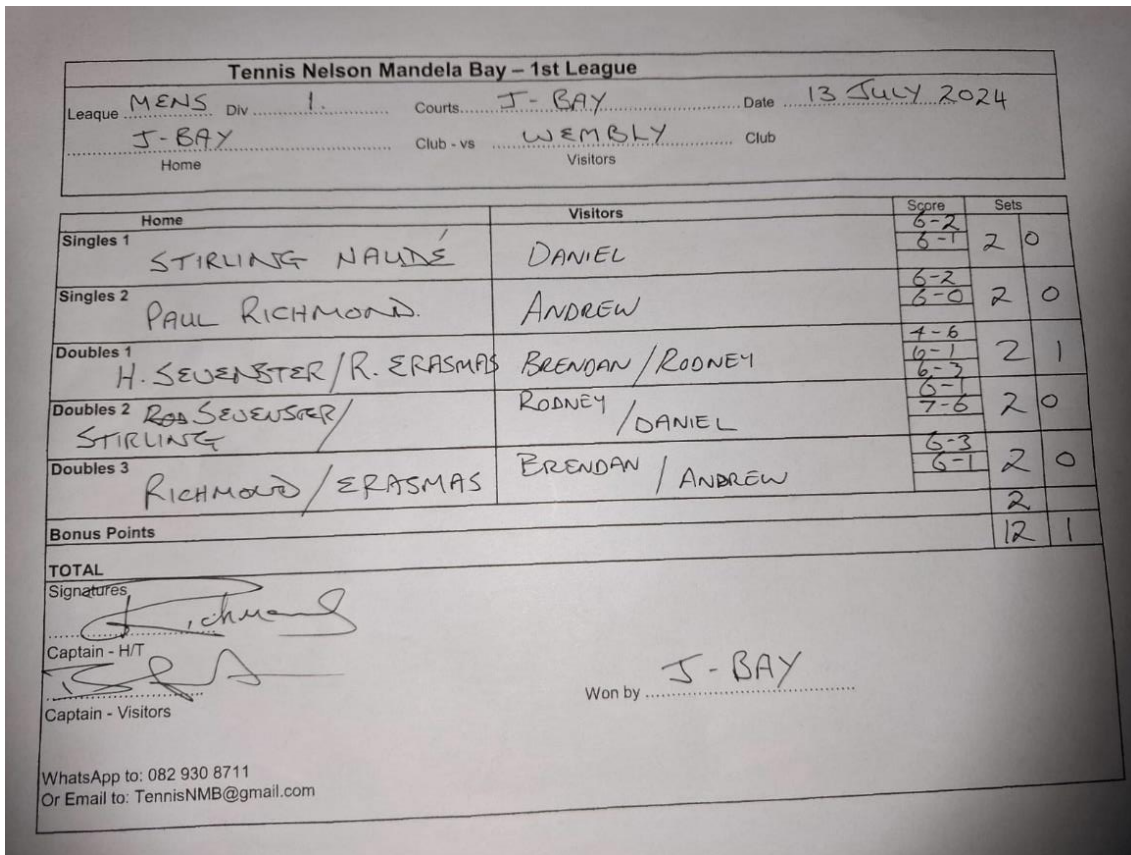 Tennis Nelson Mandela Bay – 1st League
Leaque MENS Div 1. Courts J-BAY Date 13 JULY 2024
J-BAY Club - vs WEMBLY Club
Home Visitors
Home Visitors Score Sets
Singles 1 STIRLING NAUDÉ DANIEL 6-2 6-1 2 0
Singles 2 PAUL RICHMOND. ANDREW 6-2 6-0 2 0
Doubles 1 H. SEVENSTER/R. ERASMAS BRENDAN/RODNEY 4-6 6-1 6-3 2 1
Doubles 2 SEVENSTER/ STIRLING RODNEY /DANIEL 6-1 7-6 2 0
Doubles 3 RICHMOND/ERASMAS BRENDAN / ANDREW 6-3 6-1 2 0
Bonus Points 2
TOTAL 12 1
Signatures
Captain - H/T
Won by J-BAY
Captain - Visitors
WhatsApp to: 082 930 8711
Or Email to: TennisNMB@gmail.com